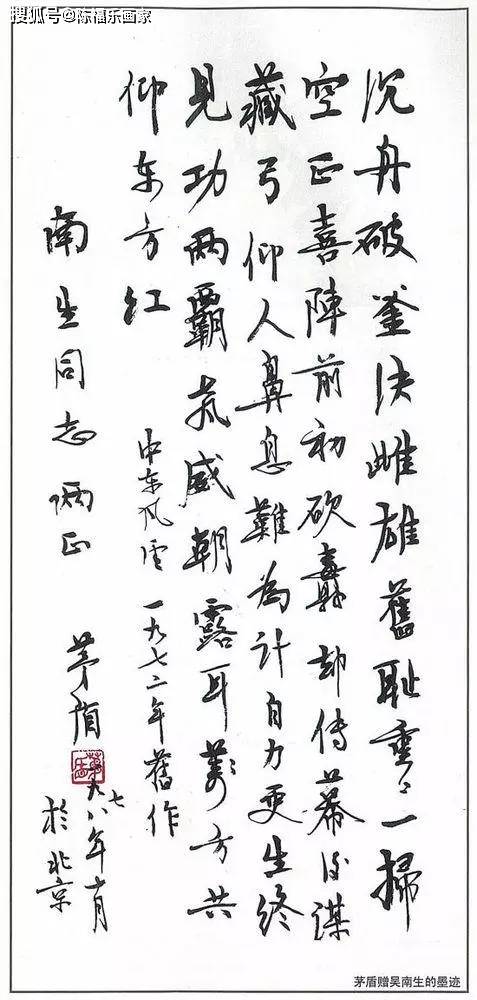 搜狐号@陈福乐画家
沉舟破釜决雌雄舊耻重〻一掃
空正喜陣前初砍纛却传幕後谋
藏弓仰人鼻息難為计自力更生终
見功两霸威朝露耳萬方共
仰东方红
中东风雲 一九七二年舊作
南生同志两正
茅盾
茅盾
一九七八年十月
於北京
茅盾赠吴南生的墨迹